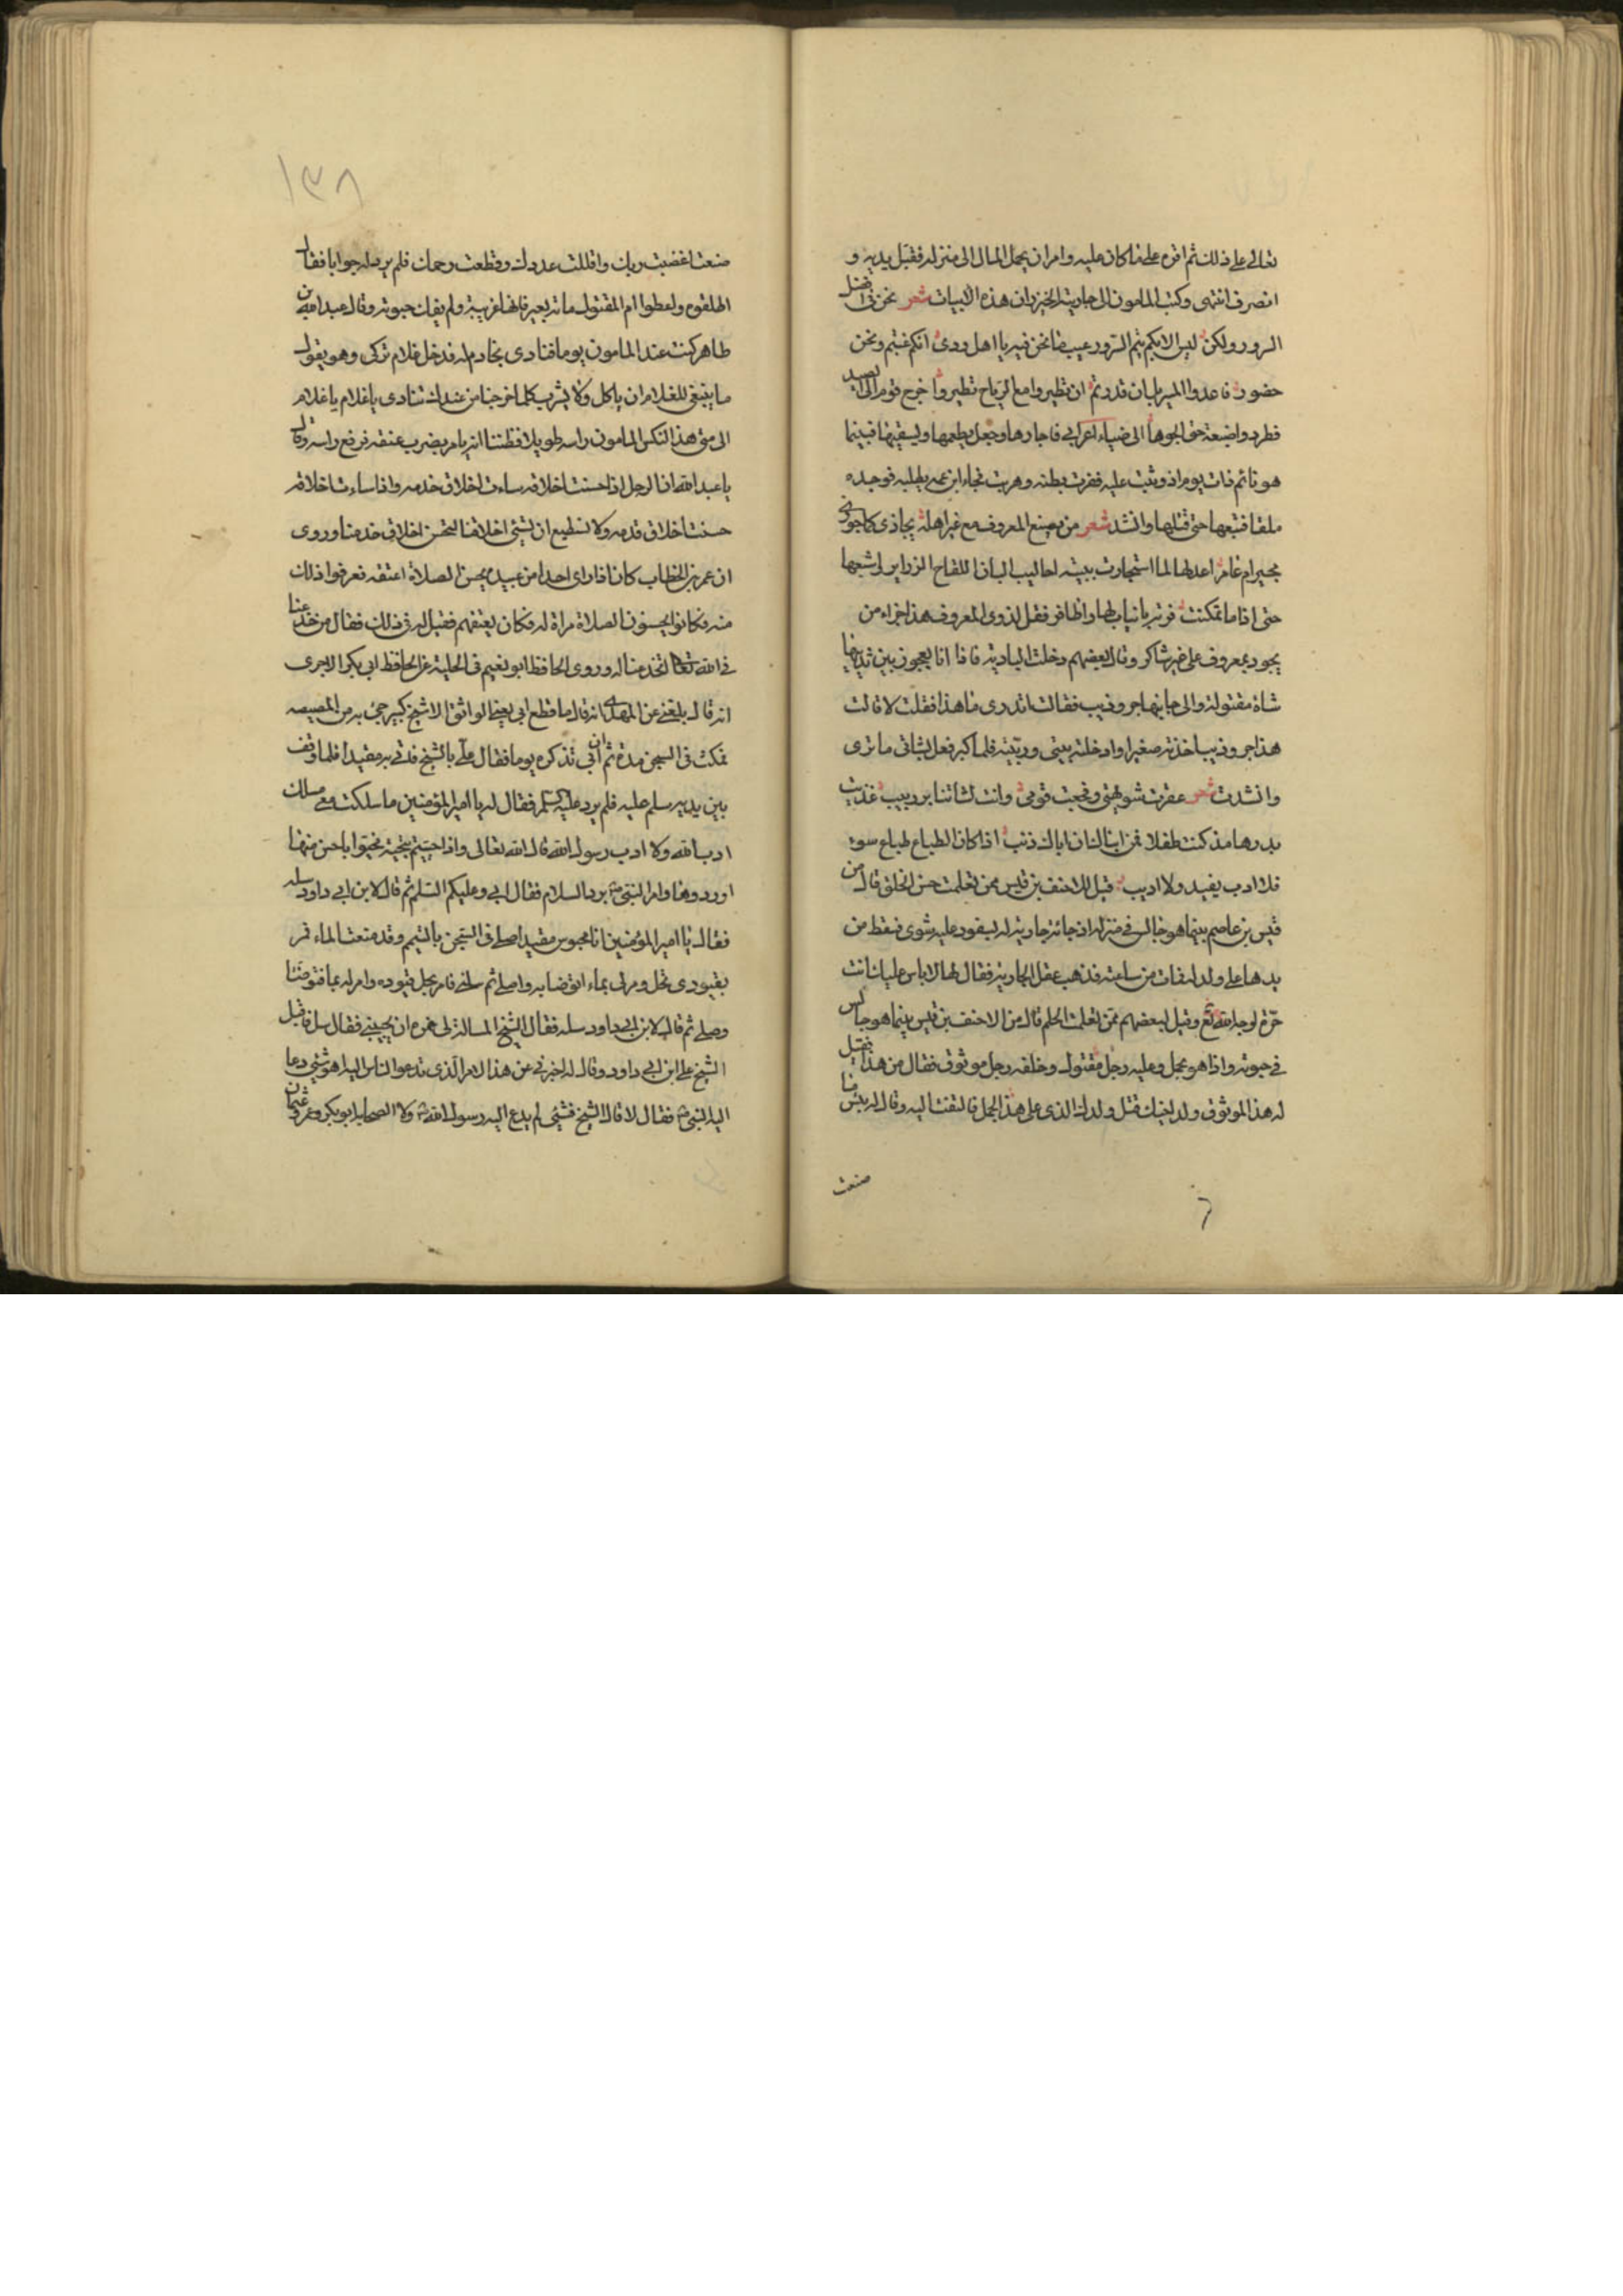 تعالى على ذلك ثم اقره على ما كان عليه وامر ان يحمل المال الى منزله فقبل يديه و
انصرف انتهى وكتب المامون الى جاريته الخيزران هذه الابيات شعر نحن فى افضل
السرور ولكن ليس الا بكم يتم السرور عيب ما نحن فيه يا اهل ودى انكم غبتم ونحن
حضور فاعدوا المسير بل ان قدرتم ان تطيروا مع الرياح تطيروا خرج قوم الى الصيد
فطردوا ضبعة حتى الجوها الى خباء اعرابي فاجارها وجعل يطعمها ويسقيها فبينما
هو نائم ذات يوم اذ وثبت عليه فبقرت بطنه وهربت فجاء ابن عمه يطلبه فوجده
ملقا فتبعها حتى قتلها وانشد شعر من يصنع المعروف مع غير اهله يجازى كما جوزى
مجير ام عامر اعد لها لما استجارت ببيته احاليب البان اللقاح الدواير واشبعها
حتى اذا ما تمكنت فرته بانياب لها واظافر فقل لذوى المعروف هذا جزاء من
يجود بمعروف على غير شاكر وقال بعضهم دخلت البادية فاذا انا بعجوز بين يديها
شاة مقتولة والى جانبها جرو ذيب فقالت اتدرى ما هذا فقلت لا قالت
هذا جرو ذيب اخذته صغيرا وادخلته بيتى وربيته فلما كبر فعل بشاتى ما ترى
وانشدت شعر عقرت شويهتى وفجعت قومى وانت لشاتنا بر ربيب غذيت
بدرها مذ كنت طفلا فمن انباك ان اباك ذئب اذا كان الطباع طباع سوء
فلا ادب يفيد ولا اديب قيل للاحنف بن قليس ممن تعلمت حسن الخلق قال من
قيس بن عاصم بينما هو جالس في منزله اذ جائته جارية له بسفود عليه شوى فسقط من
يدها على ولد له فمات من ساعته فذهب عقل الجارية فقال لها لا باس عليك انت
حرة لوجه الله تع وقيل لبعضهم ممن تعلمت الحلم قال من الاحنف بن قيس بينما هو جالس
في حبوته واذا هو بجمل وعليه رجل مقتول وخلفه رجل موثوق فقال من هذا فقيل
له هذا الموثوق ولد اخيك قتل ولدك الذى على هذا الجمل فالتفت اليه وقال له بئس ما
صنعت
١٣٨
صنعت اغضبت ربك واقللت عددك وقطعت رحمك فلم يرد له جوابا فقال
اطلقوه واعطوا ام المقتول ماية بعير فانها غريبة ولم يفك حبوته وقال عبد الله بن
طاهر كنت عند المامون يوما فنادى بخادم له فدخل غلام تركى وهو يقول
ما ينبغى للغلام ان ياكل ولا يشرب كلما خرجنا من عندك تنادى يا غلام يا غلام
الى متى هذا فنكس المامون راسه طويلا فظننا انه يامر بضرب عنقه فرفع راسه وقال
يا عبد الله ان الرجل اذا حسنت اخلاقه ساءت اخلاق خدمه واذا ساءت اخلاقه
حسنت اخلاق خدمه ولا نسطيع ان نسئ اخلاقنا لتحسن اخلاق خدمنا وروى
ان عمر بن الخطاب كان اذا راى احدا من عبيده يحسن الصلاة اعتقه فعرفوا ذلك
منه فكانوا يحسنون الصلاة مراة له فكان يعتقهم فقيل له فى ذلك فقال من خدعنا
في الله تعالى انخدعنا له وروى الحافظ ابو نعيم فى الحلية عن الحافظ ابى بكر الاجرى
انه قال بلغني عن المهتدى انه قال ما قطع ابى يعنى الواثق الا شيخ كبير جئ به من المصيصه
فمكث فى السجن مدة ثم ان ابى تذكره يوما فقال علي بالشيخ فاتى به مقيدا فلما وقف
بين يديه سلم عليه فلم يرد عليه السلم فقال له يا امير المؤمنين ما سلكت معى مسلك
ادب الله ولا ادب رسول الله قال الله تعالى واذا حييتم بتحية فحيوا باحسن منها
او ردوها وامر النبى برد السلام فقال ابى وعليكم السلم ثم قال لابن ابى داود سله
فقال يا امير المؤمنين انا محبوس مقيد اصلى فى السجن بالتيمم وقد منعت الماء فمر
بقيودى تحل ومر لى بماء اتوضا به واصلى ثم سلنى فامر بحل قيوده وامر له بماء فتوضا
وصلى ثم قال لابن ابى داود سله فقال الشيخ المسالة لى فمره ان يجيبني فقال سل فاقبل
الشيخ على ابن ابى داود وقال له اخبرنى عن هذا الامر الذى تدعو الناس اليه اهو شئى دعا
اليه النبى فقال لا قال الشيخ فشئى لم يدع اليه رسول الله ولا الصحابه ابو بكر وعمر وعثمان